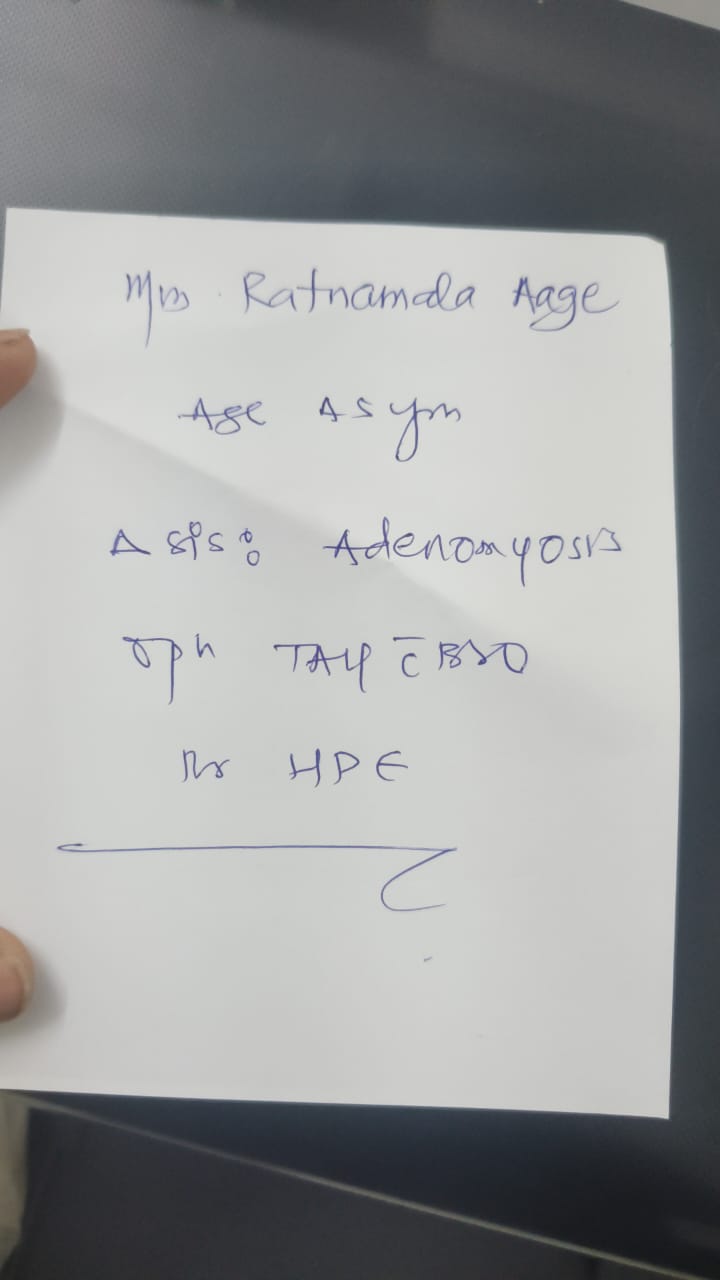 Mrs. Ratnamala Aage
Age 45 yrs
Δsis: Adenomyosis
opn TAH c̄ BSO
for HPE